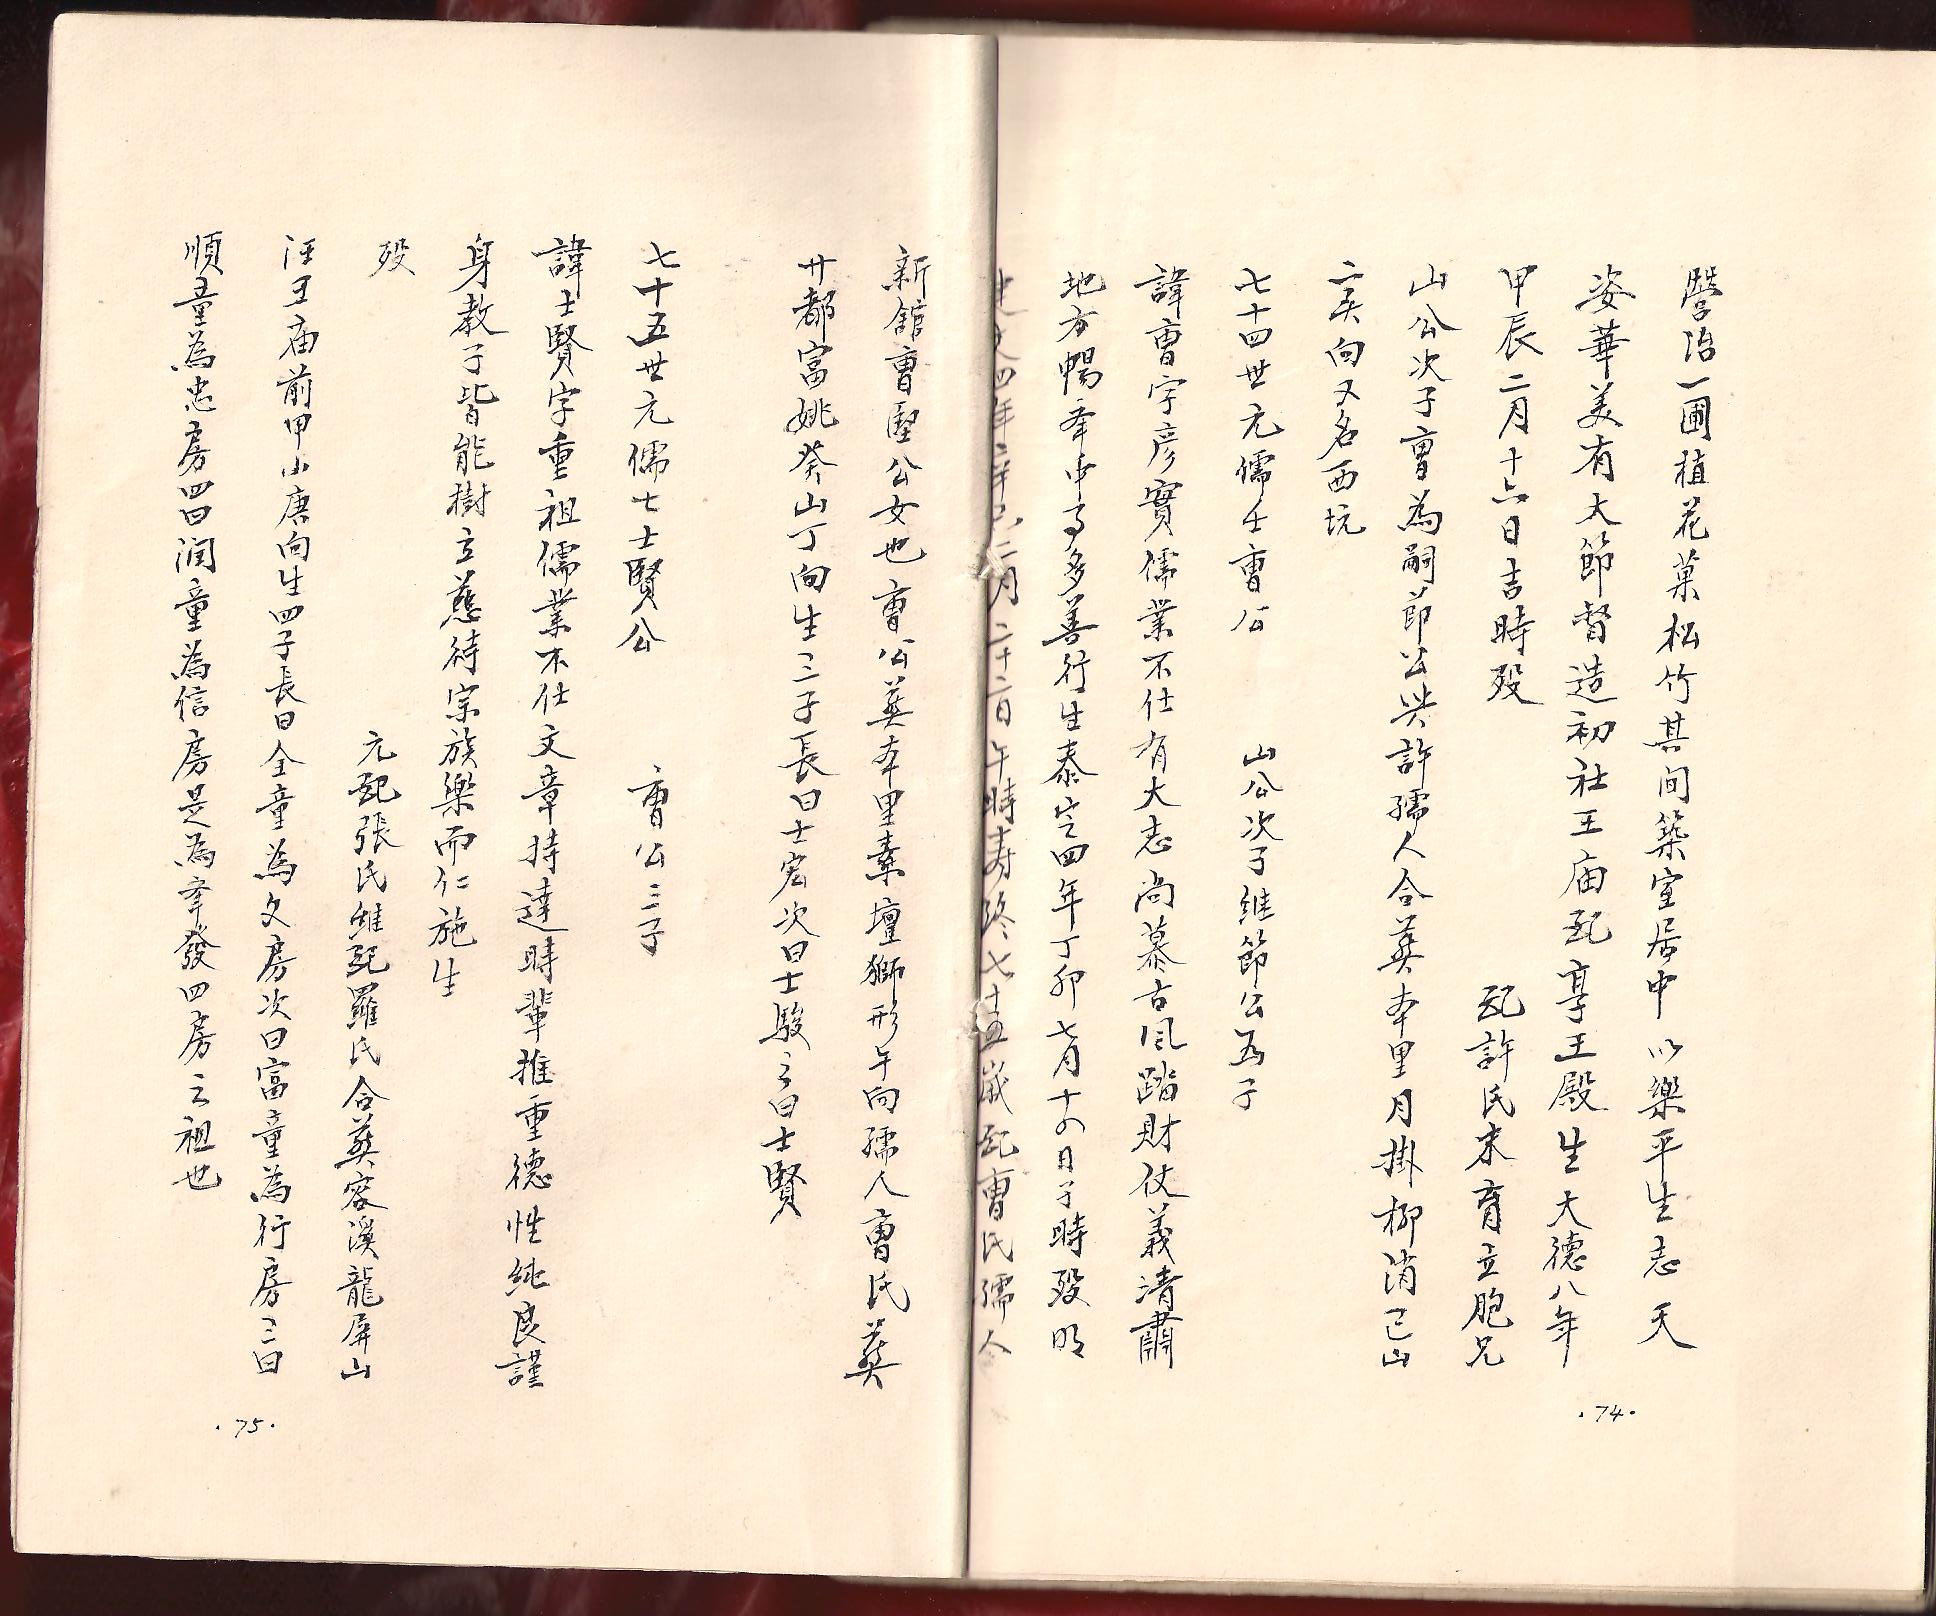 營治一圃植花菓松竹其间築室居中以樂平生志天
姿華美有大節督造初社王庙配享王殿生大德八年
甲辰二月十六日吉時殁 配許氏末育立胞兄
山公次子曺為嗣節公與許孺人合葬本里月掛柳消巳山
亥向又名西坑
七十四世元儒士曺公 山公次子继節公為子
諱曺字彦實儒業不仕有大志尚慕古風踏財仗義清肅
地方暢幸中多善行生泰定四年丁卯七月十四日子時殁明
洪武四年辛亥二月二十二日午時寿終七十五歳配曺氏孺人
新舘曺堅公女也曺公葬本里壇獅形午向孺人曺氏葬
廿都富姚癸山丁向生三子長曰士宏次曰士駿三曰士賢
七十五世元儒士士賢公 曺公三子
諱士賢字重祖儒業不仕文章持達時輩推重德性纯良謹
身教子皆能樹立慈待宗族樂而仁施生
殁 元配張氏継配羅氏合葬容溪龍屏山
汪王庙前甲山庚向生四子長曰全童為文房次曰富童為行房三曰
順童為忠房四曰潤童為信房是為幸發四房之祖也
·74·
·75·